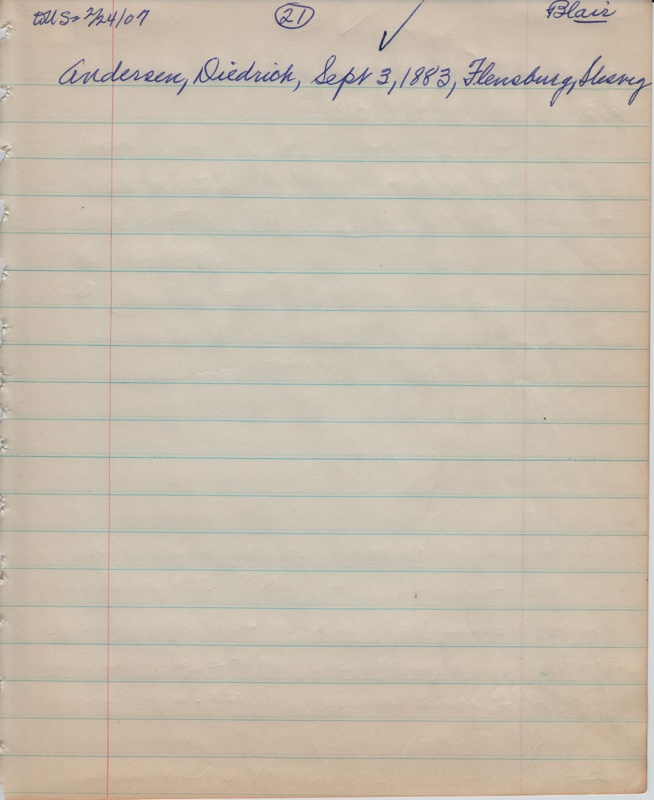 toUS= 2/24/07 21 Blair
Andersen, Diedrich, Sept 3, 1883, Flensburg, Slesvig